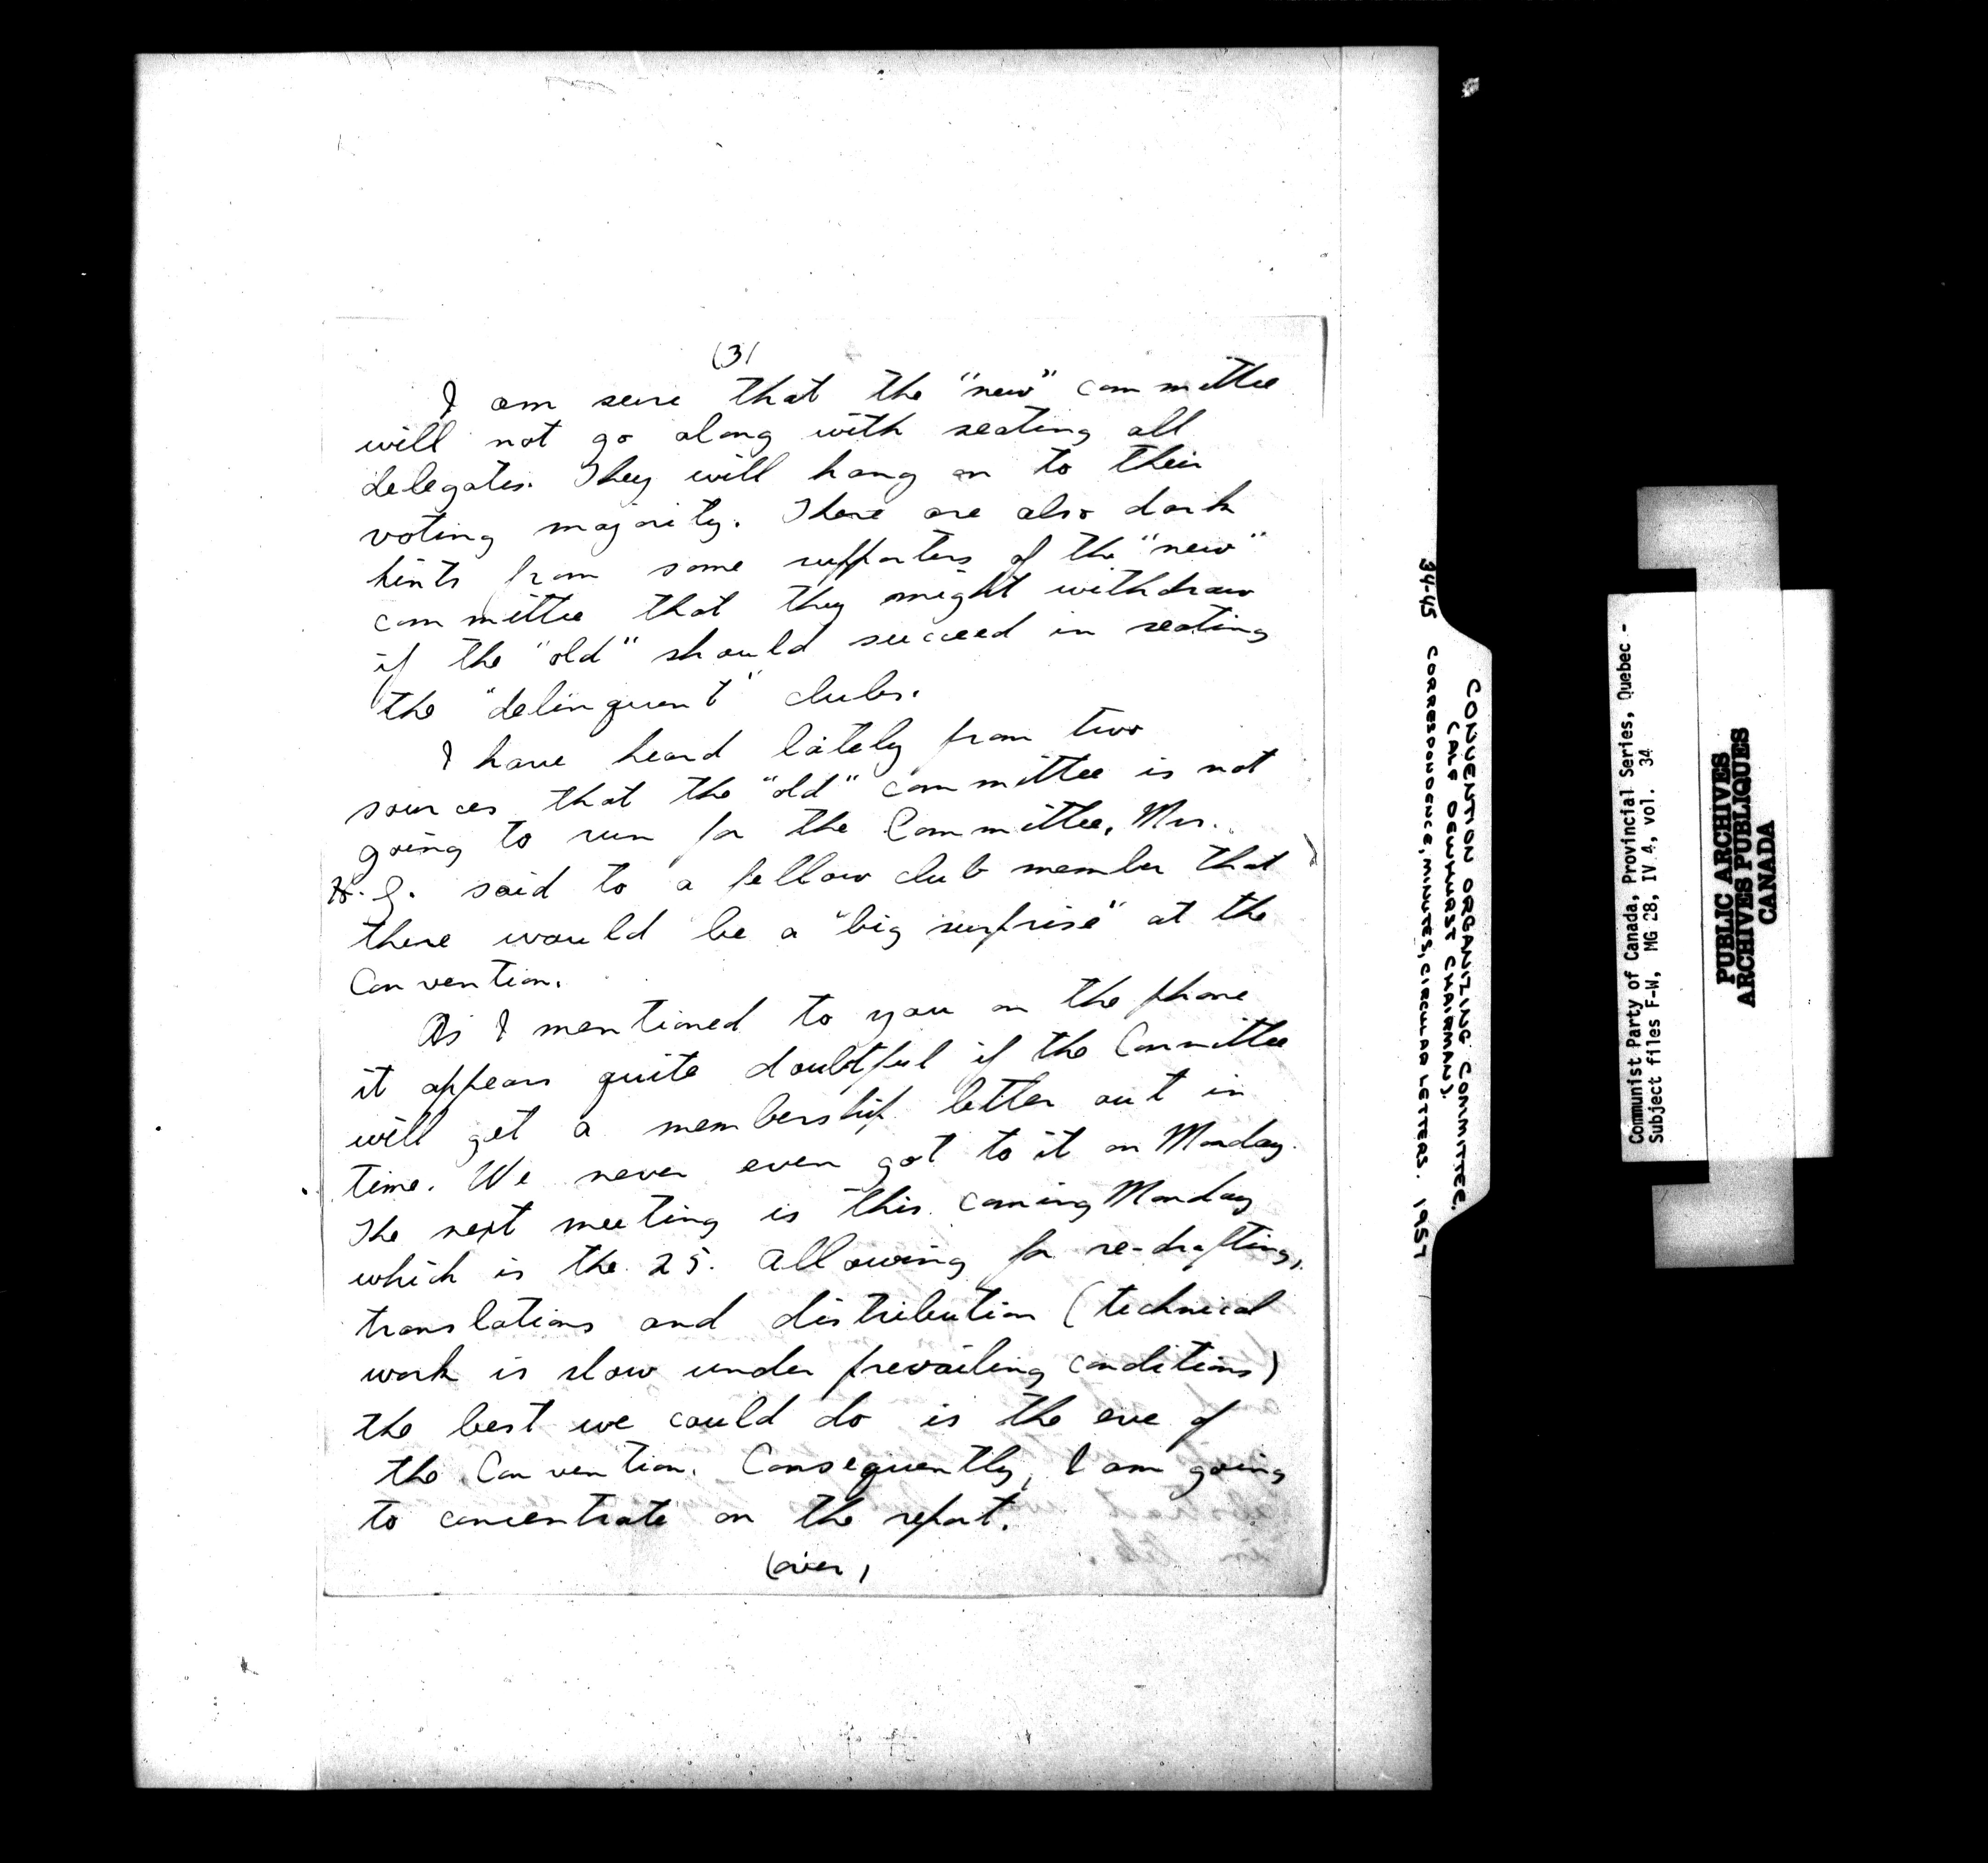 (3)
I am sure that the "new" committee
will not go along with seating all
delegates. They will hang on to their
voting majority. There are also dark
hints from some supporters of the "new"
committee that they might withdraw
if the "old" should succeed in seating
the "delinquent" clubs.
I have heard lately from two
sources that the "old" committee is not
going to run for the Committee. Mrs.
said to a fellow club member that
there would be a "big surprise" at the
Convention.
As I mentioned to you on the phone
it appears quite doubtful if the Committee
will get a membership letter out in
time. We never even got to it on Monday.
The next meeting is this coming Monday
which is the 25. Allowing for re-drafting,
translations and distribution (technical
work is slow under prevailing conditions)
the best we could do is the eve of
the Convention. Consequently, I am going
to concentrate on the report.
(over)
34-45 CORRESPONDENCE, MINUTES, CIRCULAR LETTERS. 1957
CONVENTION ORGANIZING COMMITTEE.
(CALE DEWHURST CHAIRMAN).
Communist Party of Canada, Provincial Series, Quebec -
Subject files F-W, MG 28, IV 4, vol. 34
PUBLIC ARCHIVES
ARCHIVES PUBLIQUES
CANADA